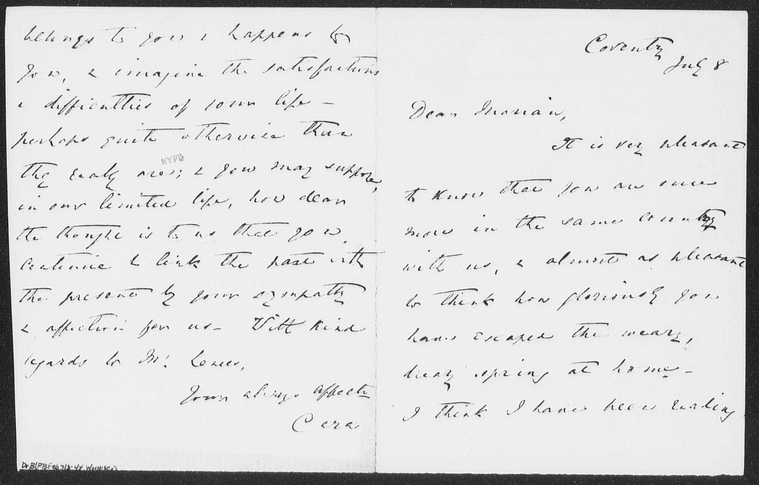 Coventry
July 8
Dear Marian,
It is very pleasant
to know that you are once
more in the same country
with us, & almost as pleasant
to think how gloriously you
have escaped the weary,
dreary spring at home -
I think I have been reading
belongs to you & happens to
you, & imagine the satisfactions
& difficulties of your life -
perhaps quite otherwise than
they really are; & you may suppose,
in our limited life, how dear
the thought is to us that you
continue to link the past with
the present by your sympathy
& affection for us - With kind
regards to Mr. Lewes,
Yours always affectly
Cara
NYPD